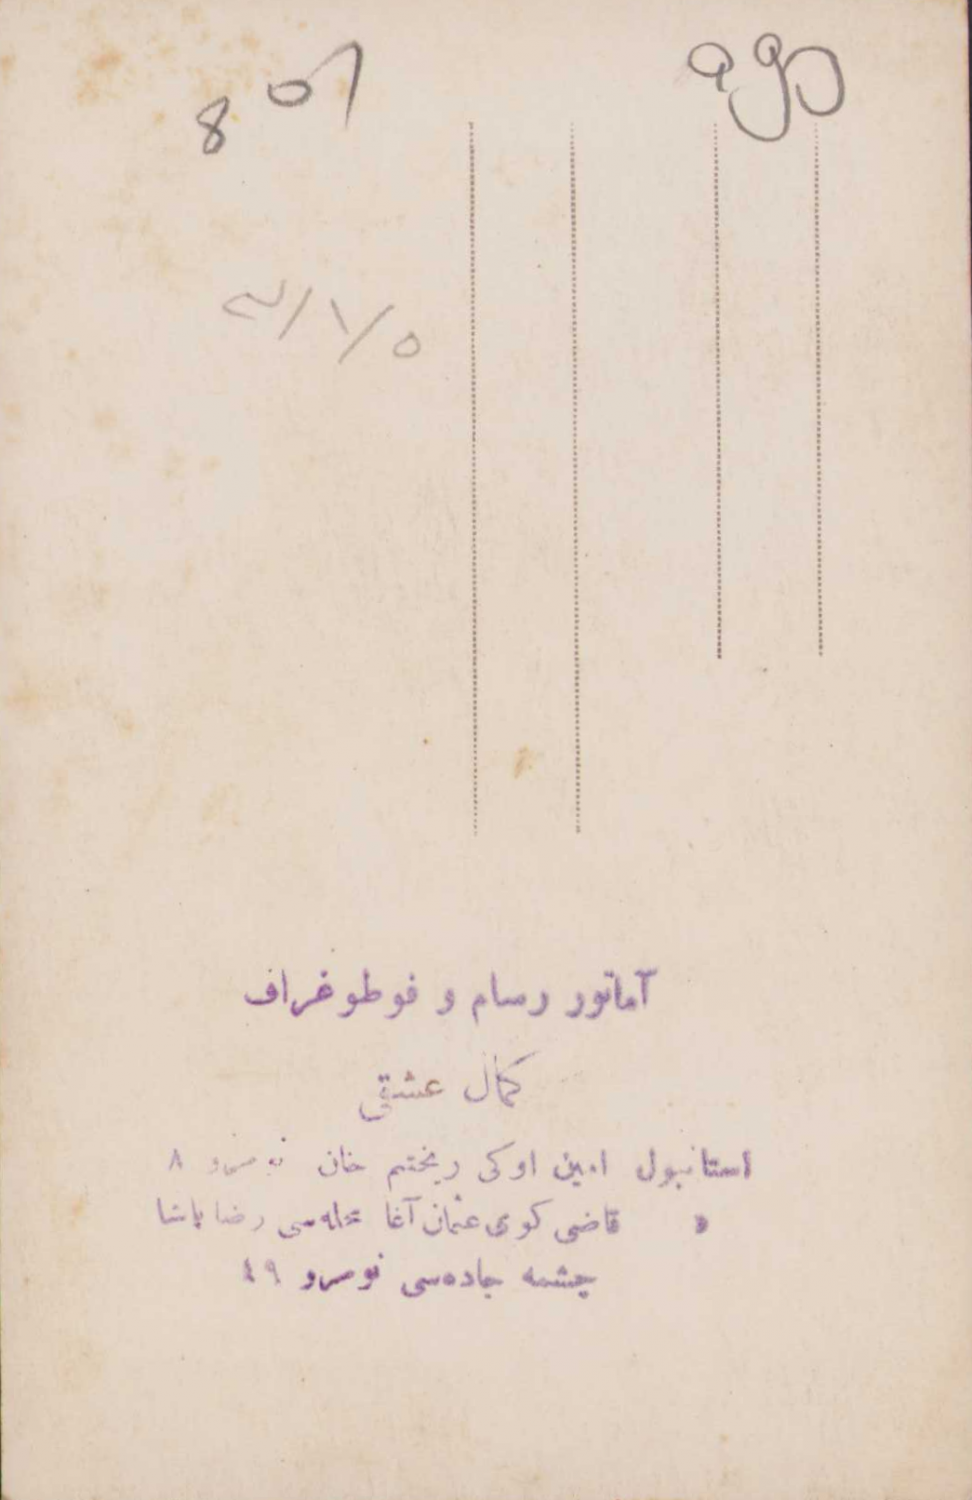 آماتور رسام و فوطوغراف
كمال عشقى
استانبول امين اوكى ريختم خان نومرو ٨
» قاضى كوى عثمان آغا محله‌سى رضا پاشا
چشمه جاده‌سى نومرو ٤٩